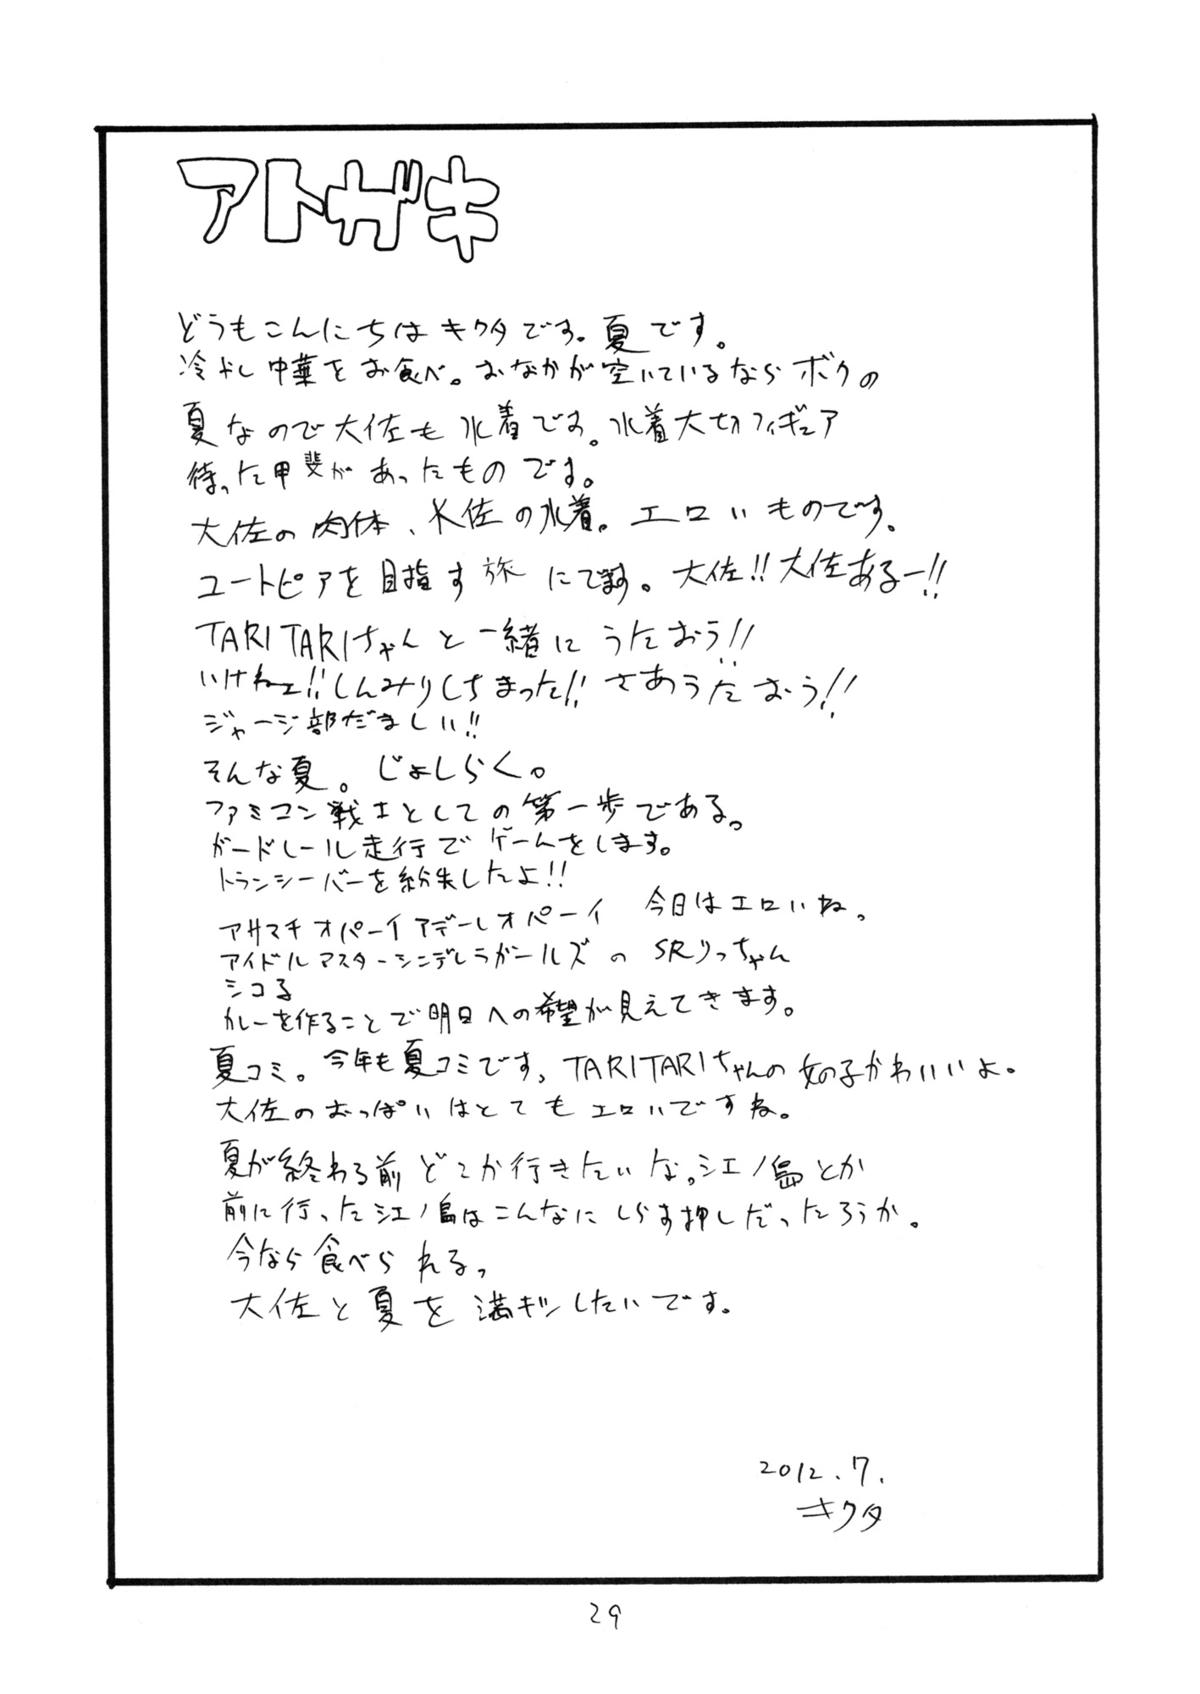 アトガキ
どうもこんにちはキクタです。夏です。
冷やし中華をお食べ。おなかが空いているならボクの
夏なので大佐も水着です。水着大切フィギュア
待った甲斐があったものです。
大佐の肉体、大佐の水着。エロいものです。
ユートピアを目指す旅にでます。大佐!!大佐あるー!!
TARITARIちゃんと一緒にうたおう!!
いけねェ!!しんみりしちまった!!さあうたおう!!
ジャージ部だましい!!
そんな夏。じょしらく。
ファミコン戦士としての第一歩である。
ガードレール走行でゲームをします。
トランシーバーを紛失したよ!!
アサマチオパーイアデーレオパーイ 今日はエロいね。
アイドルマスターシンデレラガールズのSRりっちゃん
シコる
カレーを作ることで明日への希望が見えてきます。
夏コミ。今年も夏コミです。TARITARIちゃんの女の子かわいいよ。
大佐のおっぱいはとてもエロいですね。
夏が終わる前どこか行きたいな。江ノ島とか
前に行った江ノ島はこんなにしらす押しだったろうか。
今なら食べられる。
大佐と夏を満キツしたいです。
2012.7.
キクタ
29